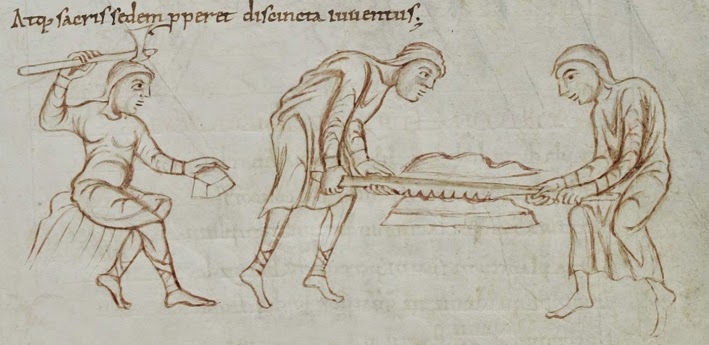 Atq; sacris sedem pperet discincta iuventus;